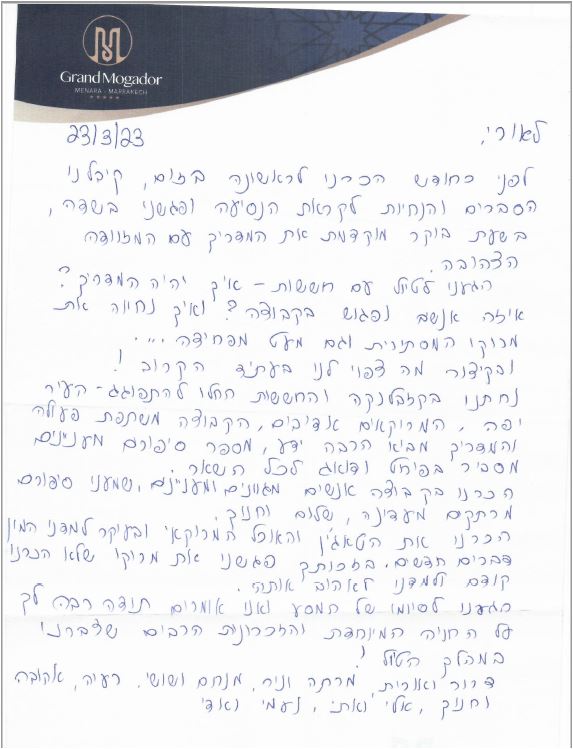 Grand Mogador
MENARA - MARRAKECH
23/3/23
לאורי,
לפני כחודש הכרנו לראשונה בזום, קיבלנו
הסברים והנחיות לקראת הנסיעה ופגשנו בשדה,
בשעת בוקר מוקדמת את המדריך עם המזוודה
הצהובה.
הגענו לטיול עם חששות - איך יהיה המדריך?
איזה אנשים נפגוש בקבוצה? ואיך נחווה את
מרוקו המסתורית וגם מעט מפחידה....
ובקיצור מה צפוי לנו בעתיד הקרוב!
נחתנו בקזבלנקה והחששות החלו להתפוגג - העיר
יפה, המרוקאים אדיבים, הקבוצה משתפת פעולה
והמדריך מביא הרבה ידע, מספר סיפורים מעניינים
מסביר בפירוט ודואג לכל השאר.
הכרנו בקבוצה אנשים מגוונים ומעניינים, שמענו סיפורים
מרתקים מעדינה, שלום וחנוך.
הכרנו את הטאג'ין והאוכל המרוקאי ובעיקר למדנו המון
דברים חדשים. בזכותך פגשנו את מרוקו שלא הכרנו
קודם ולמדנו לאהוב אותה.
הגענו לסיומו של המסע ואנו אומרים תודה רבה לך
על החויה המיוחדת והזכרונות הרבים שצברנו
במהלך הטיול!
דרור ואורית, מרתה וניר, מנחם ושושי, רעיה, יעקובה
וחנוך, אלי ואתי, נעמי ואודי